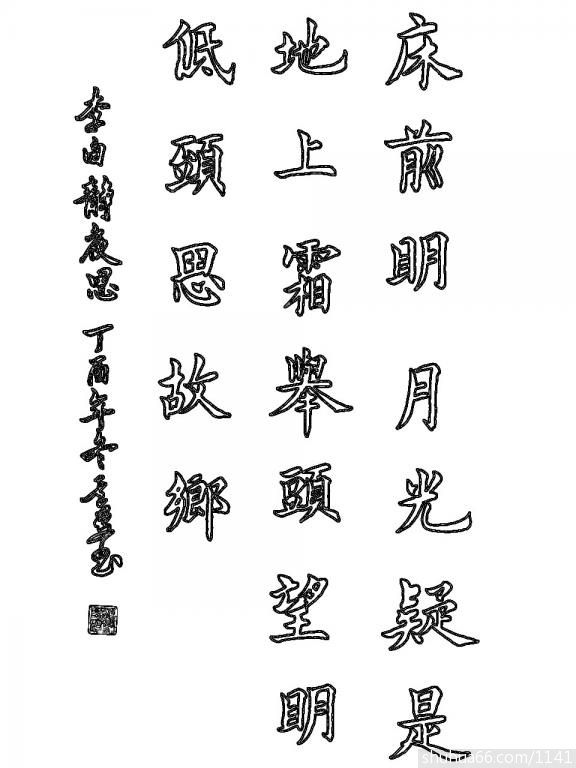 床前明月光疑是
地上霜舉頭望明
低頭思故鄉
李白靜夜思 丁酉年冬
shuhua66.com/1141